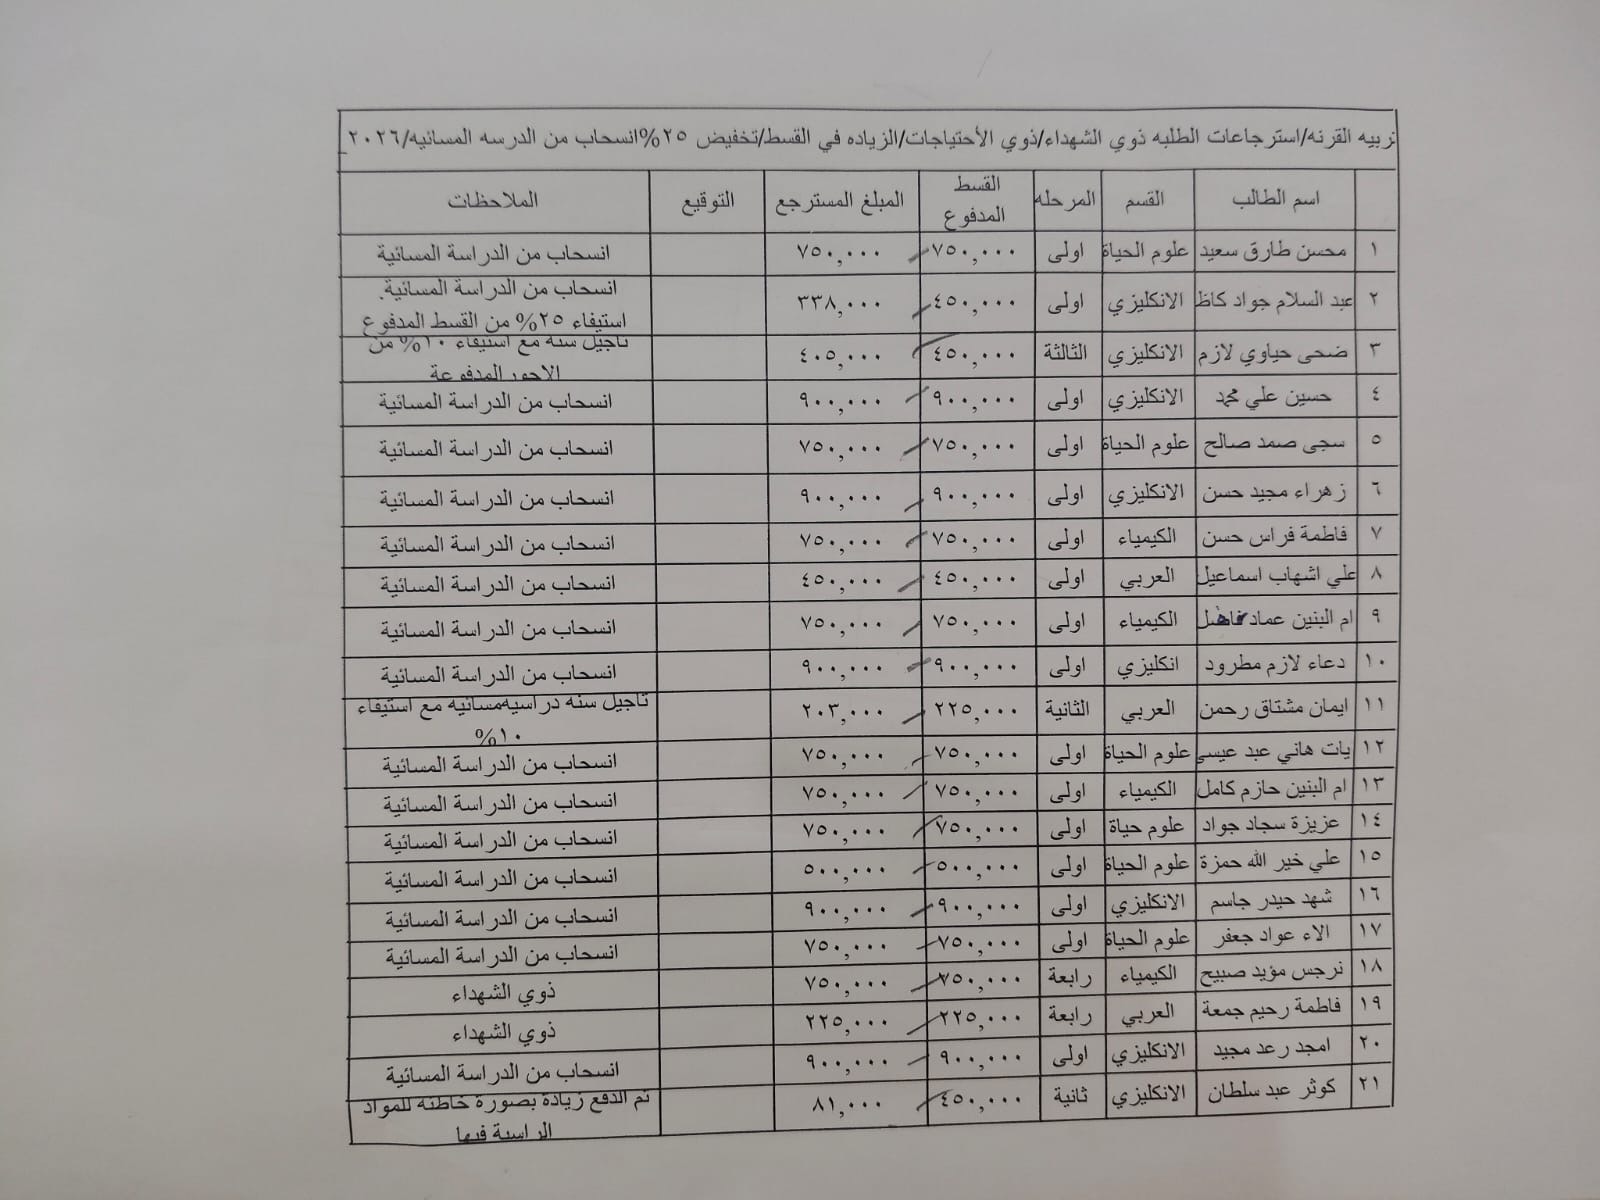 تربيه القرنه/استرجاعات الطلبه ذوي الشهداء/ذوي الأحتياجات/الزياده في القسط/تخفيض ٢٥%انسحاب من الدرسه المسائيه/٢٠٢٦_
اسم الطالب القسم المرحله القسط المدفوع المبلغ المسترجع التوقيع الملاحظات
١ محسن طارق سعيد علوم الحياة اولى ٧٥٠,٠٠٠ ٧٥٠,٠٠٠ انسحاب من الدراسة المسائية
٢ عبد السلام جواد كاظ الانكليزي اولى ٤٥٠,٠٠٠ ٣٣٨,٠٠٠ انسحاب من الدراسة المسائية. استيفاء ٢٥% من القسط المدفوع
٣ ضحى حياوي لازم الانكليزي الثالثة ٤٥٠,٠٠٠ ٤٠٥,٠٠٠ تاجيل سنه مع استيفاء ١٠% من الاجور المدفوعة
٤ حسين علي محمد الانكليزي اولى ٩٠٠,٠٠٠ ٩٠٠,٠٠٠ انسحاب من الدراسة المسائية
٥ سجى صمد صالح علوم الحياة اولى ٧٥٠,٠٠٠ ٧٥٠,٠٠٠ انسحاب من الدراسة المسائية
٦ زهراء مجيد حسن الانكليزي اولى ٩٠٠,٠٠٠ ٩٠٠,٠٠٠ انسحاب من الدراسة المسائية
٧ فاطمة فراس حسن الكيمياء اولى ٧٥٠,٠٠٠ ٧٥٠,٠٠٠ انسحاب من الدراسة المسائية
٨ علي اشهاب اسماعيل العربي اولى ٤٥٠,٠٠٠ ٤٥٠,٠٠٠ انسحاب من الدراسة المسائية
٩ ام البنين عماد الكيمياء اولى ٧٥٠,٠٠٠ ٧٥٠,٠٠٠ انسحاب من الدراسة المسائية
١٠ دعاء لازم مطرود انكليزي اولى ٩٠٠,٠٠٠ ٩٠٠,٠٠٠ انسحاب من الدراسة المسائية
١١ ايمان مشتاق رحمن العربي الثانية ٢٢٥,٠٠٠ ٢٠٣,٠٠٠ تاجيل سنه دراسيه‌مسائيه مع استيفاء ١٠%
١٢ يات هاني عبد عيسى علوم الحياة اولى ٧٥٠,٠٠٠ ٧٥٠,٠٠٠ انسحاب من الدراسة المسائية
١٣ ام البنين حازم كامل الكيمياء اولى ٧٥٠,٠٠٠ ٧٥٠,٠٠٠ انسحاب من الدراسة المسائية
١٤ عزيزة سجاد جواد علوم حياة اولى ٧٥٠,٠٠٠ ٧٥٠,٠٠٠ انسحاب من الدراسة المسائية
١٥ علي خير الله حمزة علوم الحياة اولى ٥٠٠,٠٠٠ ٥٠٠,٠٠٠ انسحاب من الدراسة المسائية
١٦ شهد حيدر جاسم الانكليزي اولى ٩٠٠,٠٠٠ ٩٠٠,٠٠٠ انسحاب من الدراسة المسائية
١٧ الاء عواد جعفر علوم الحياة اولى ٧٥٠,٠٠٠ ٧٥٠,٠٠٠ انسحاب من الدراسة المسائية
١٨ نرجس مؤيد صبيح الكيمياء رابعة ٧٥٠,٠٠٠ ٧٥٠,٠٠٠ ذوي الشهداء
١٩ فاطمة رحيم جمعة العربي رابعة ٢٢٥,٠٠٠ ٢٢٥,٠٠٠ ذوي الشهداء
٢٠ امجد رعد مجيد الانكليزي اولى ٩٠٠,٠٠٠ ٩٠٠,٠٠٠ انسحاب من الدراسة المسائية
٢١ كوثر عبد سلطان الانكليزي ثانية ٤٥٠,٠٠٠ ٨١,٠٠٠ تم الدفع زيادة بصورة خاطئه للمواد الراسبة فيها